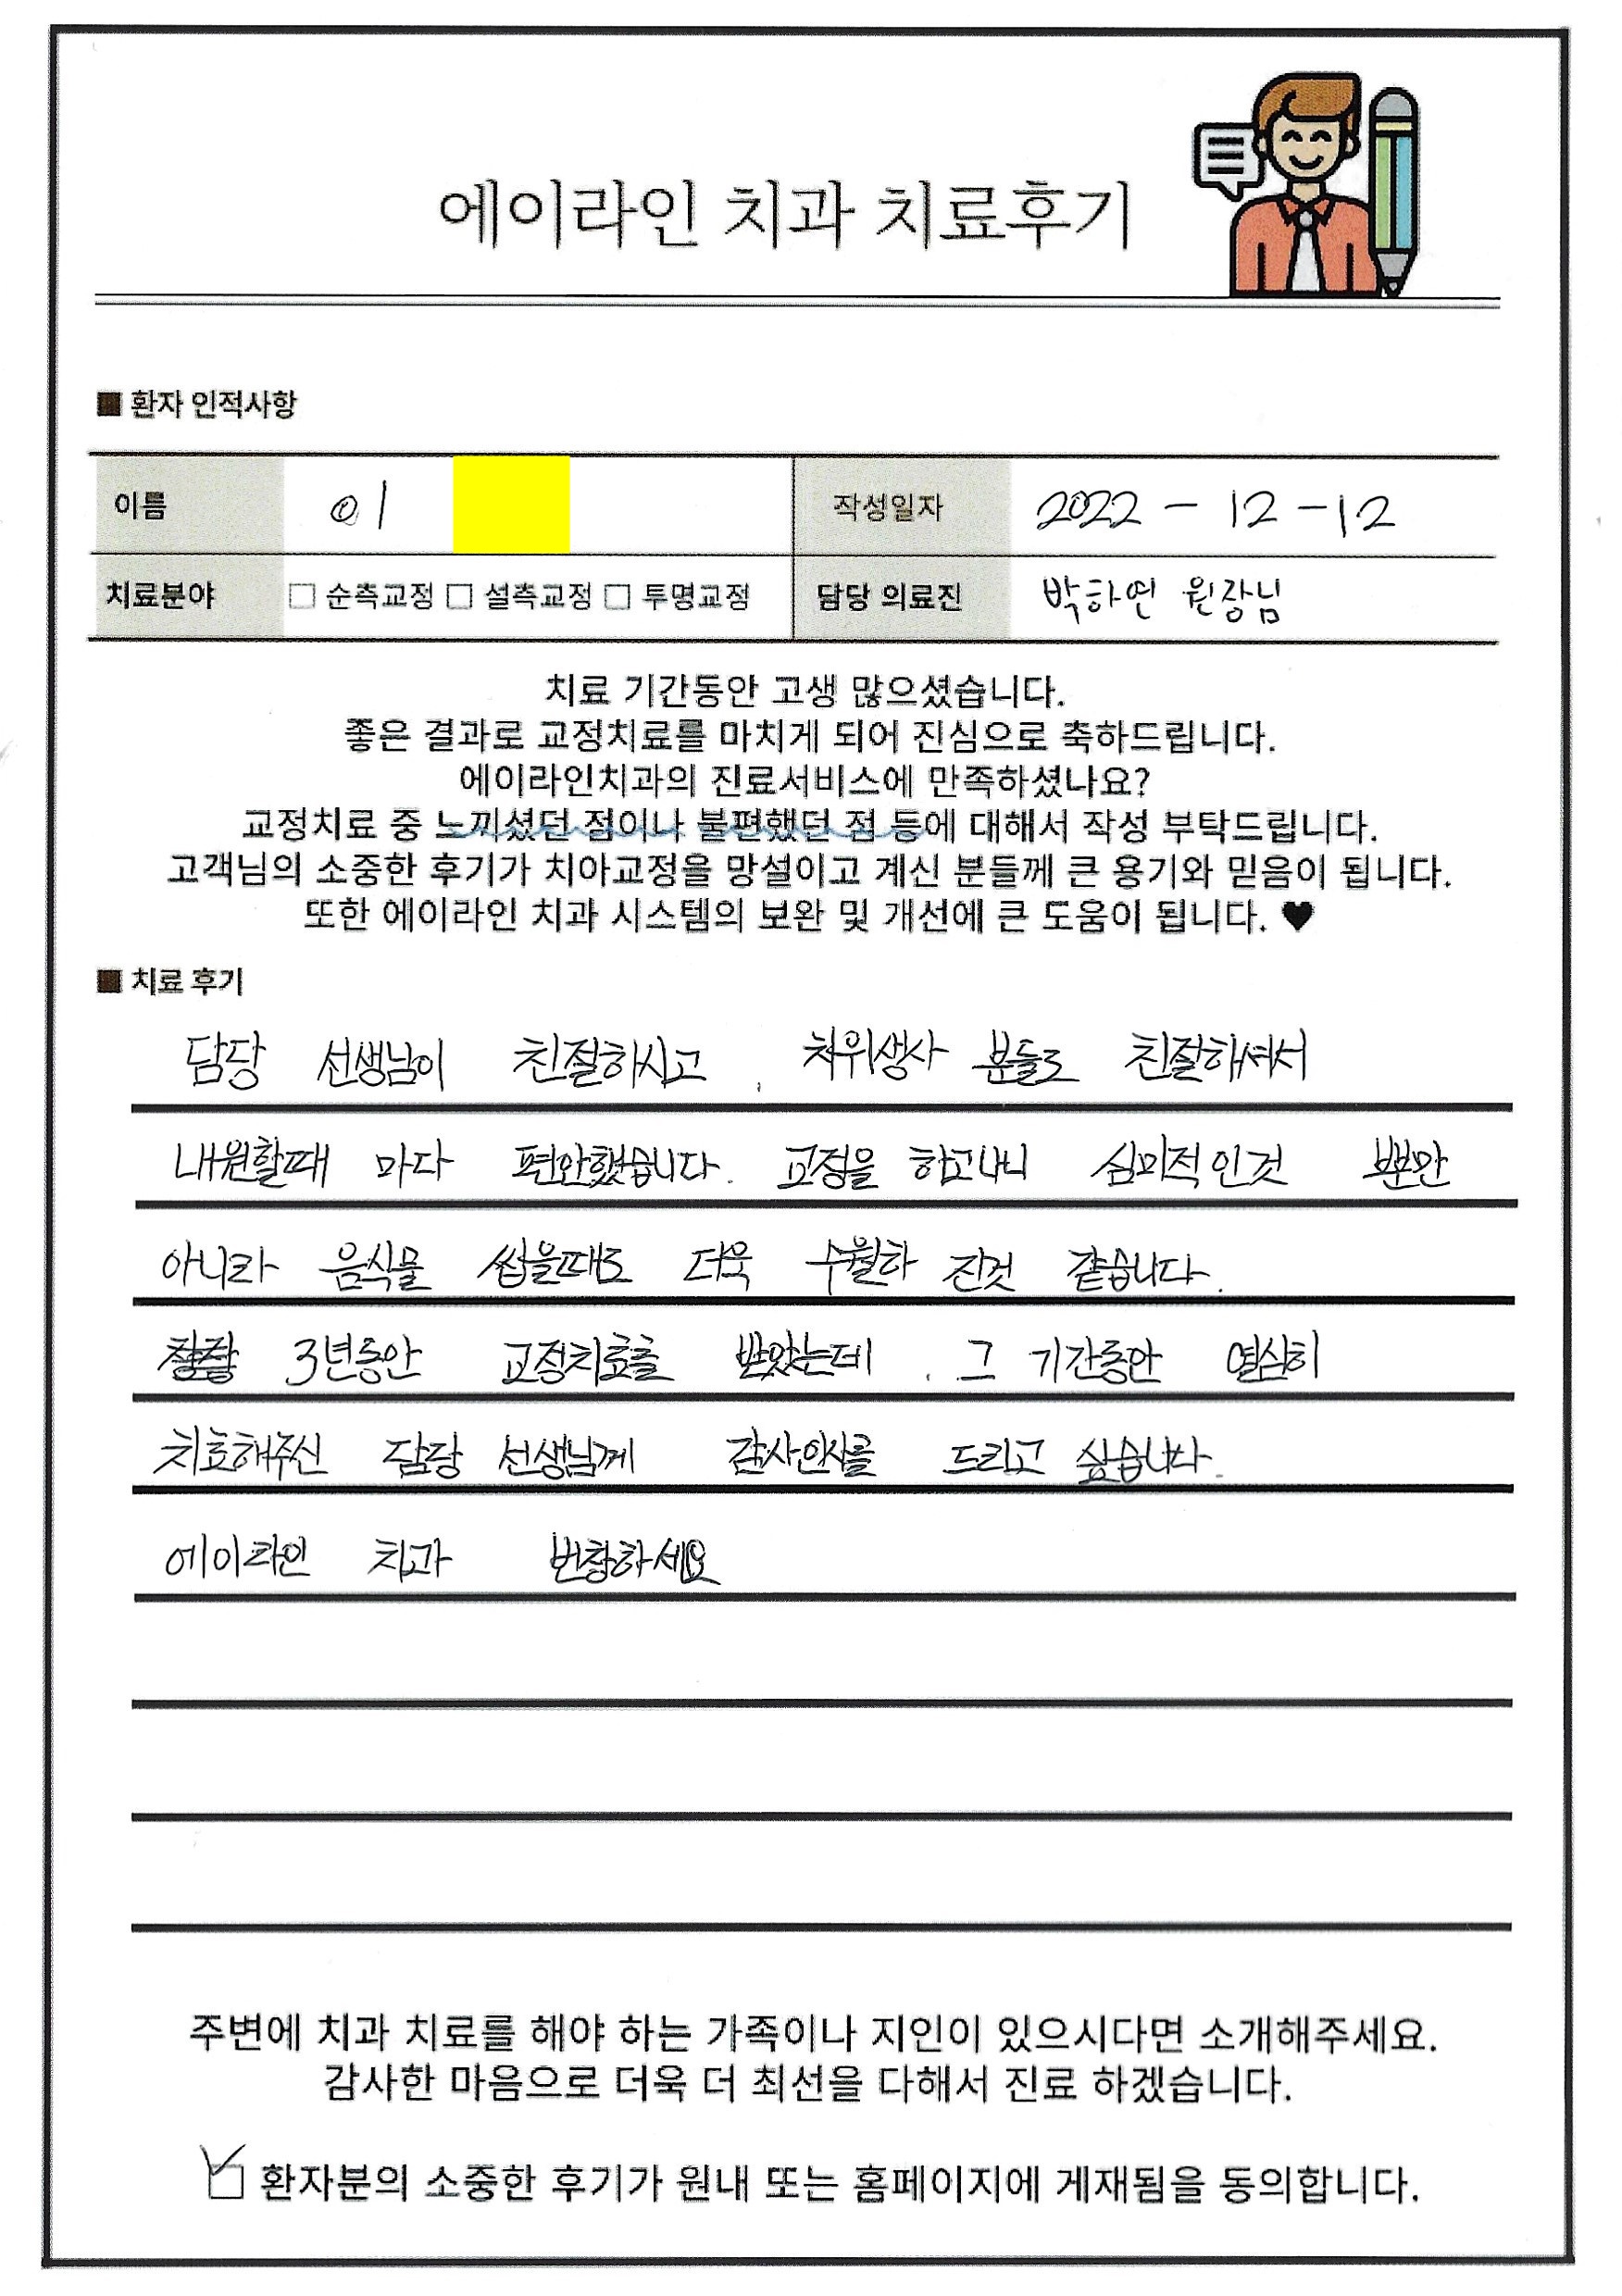 에이라인 치과 치료후기
■ 환자 인적사항
이름 이 작성일자 2022 - 12 - 12
치료분야 □ 순측교정 □ 설측교정 □ 투명교정 담당 의료진 박하연 원장님
치료 기간동안 고생 많으셨습니다.
좋은 결과로 교정치료를 마치게 되어 진심으로 축하드립니다.
에이라인치과의 진료서비스에 만족하셨나요?
교정치료 중 느끼셨던 점이나 불편했던 점 등에 대해서 작성 부탁드립니다.
고객님의 소중한 후기가 치아교정을 망설이고 계신 분들께 큰 용기와 믿음이 됩니다.
또한 에이라인 치과 시스템의 보완 및 개선에 큰 도움이 됩니다. ♥
■ 치료 후기
담당 선생님이 친절하시고, 치위생사 분들도 친절하셔서
내원할때 마다 편안했습니다. 교정을 하고나니 심미적인것 뿐만
아니라 음식물 씹을때도 더욱 수월하 진것 같습니다.
3년동안 교정치료를 받았는데, 그 기간동안 열심히
치료해주신 담당 선생님께 감사인사를 드리고 싶습니다.
에이라인 치과 번창하세요
주변에 치과 치료를 해야 하는 가족이나 지인이 있으시다면 소개해주세요.
감사한 마음으로 더욱 더 최선을 다해서 진료 하겠습니다.
환자분의 소중한 후기가 원내 또는 홈페이지에 게재됨을 동의합니다.